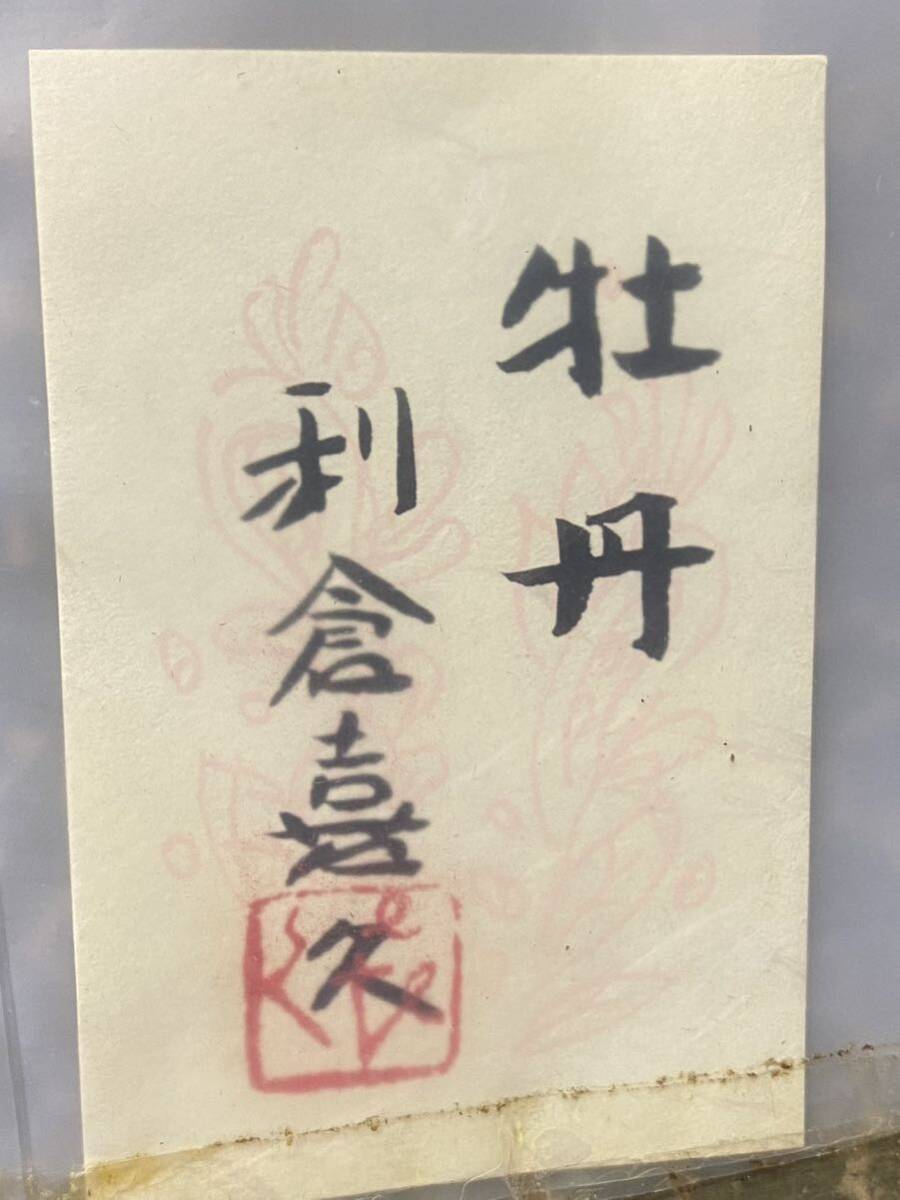 牡丹
利倉喜久